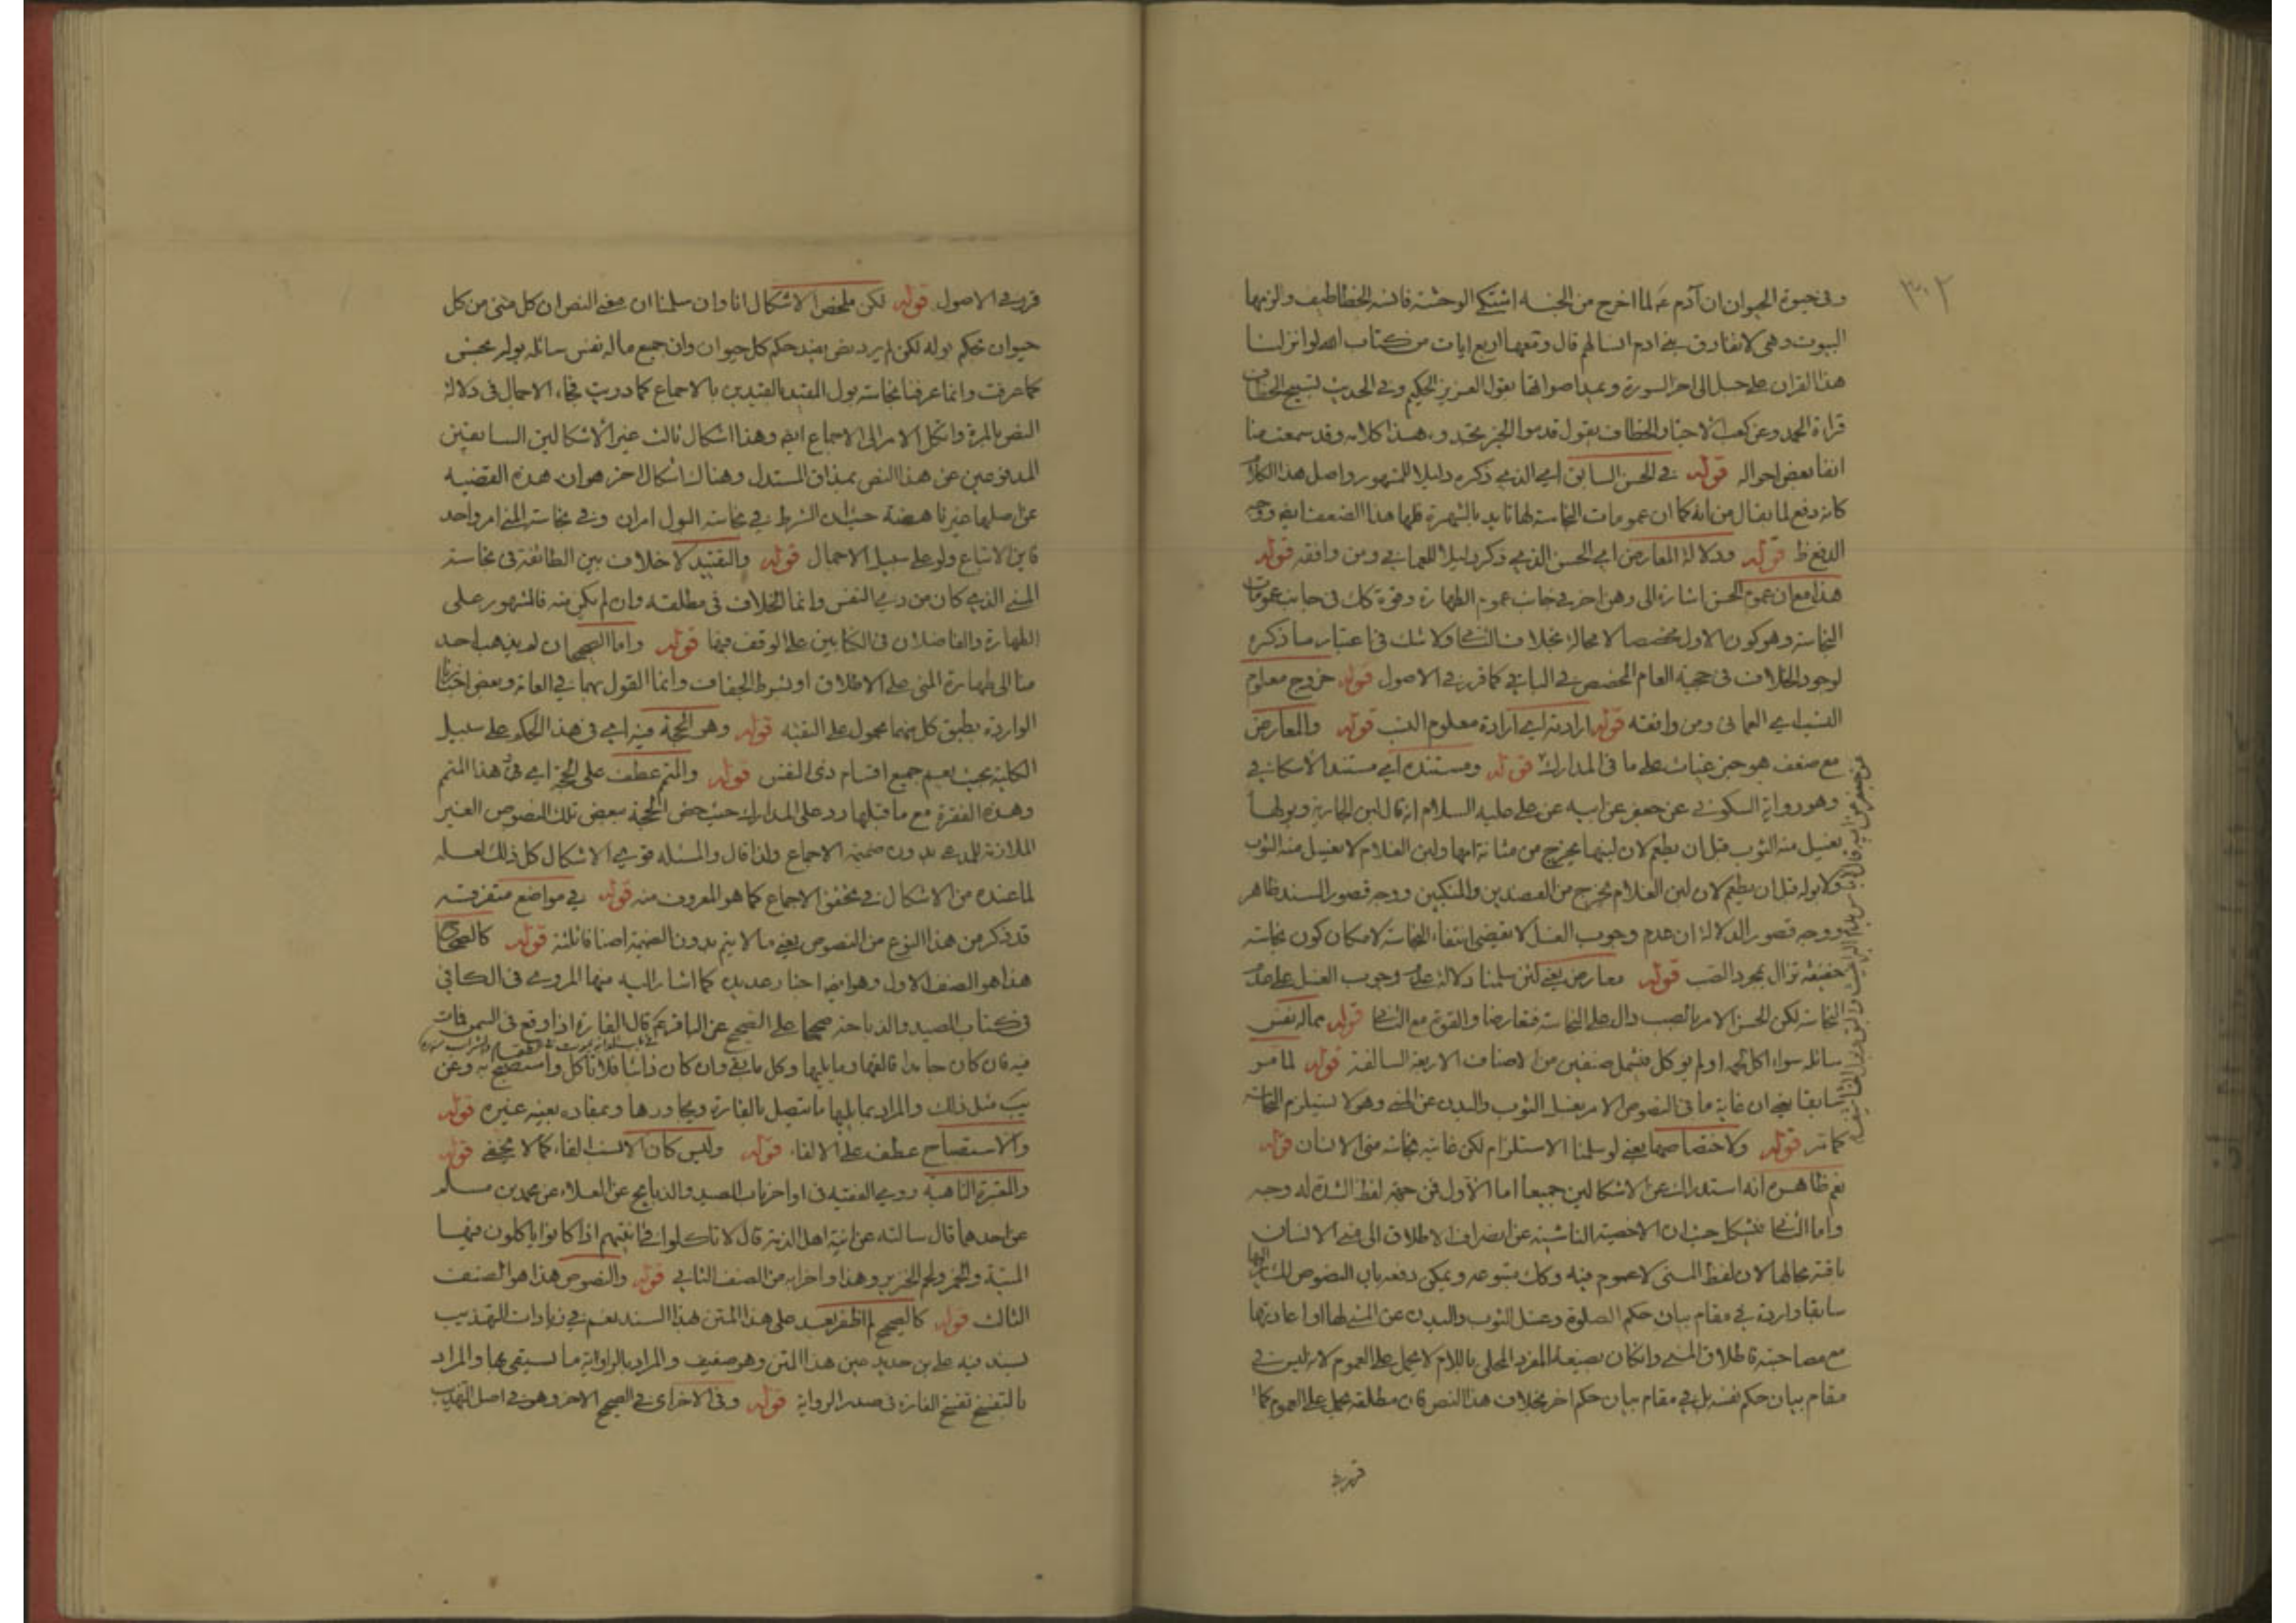 ٣٠٢
وفى حيوة الحيوان ان آدم ع لما اخرج من الجنة اشتكى الوحشة فانسه بالخطاطيف والزمها
البيوت وهى لا تفارق بنى ادم انسا لهم قال ومعها اربع ايات من كتاب الله لو انزلنا
هذا القران على جبل الى اخر السورة وتمد اصواتها بقول العزيز الحكيم وفى الحديث تسبيح الخطاف
قراءة الحمد وعن كعب الاحبار والخطاف يقول قدموا الخير تجدوه هذا كلامه وقد سمعت منا
انفا بعض احواله قوله فى الحسن السابق اى الذى ذكره دليلا للمشهور واصل هذا الكلام
كانه دفع لما يقال من انه كما ان عمومات النجاسة لها تايد بالشهرة فلها هذا الضعف ايضا ووجه
الدفع ظ قوله ودلالة المعارض اى الحسن الذى ذكر دليلا للعمانى ومن وافقه قوله
هذا مع ان عموم الحسن اشارة الى وهن اخر فى جانب عموم الطهارة وقوة كك فى جانب عمومات
النجاسة وهو كون الاول مخصصا لا محالة بخلاف الثانى ولا شك فى اعتبار ما ذكره
لوجود الخلاف فى حجية العام المخصص فى الباقى كما قرر فى الاصول قوله خروج معلوم
النسب اى العمانى ومن وافقه قوله ارادته اى ارادة معلوم النسب قوله والمعارض
مع ضعف هو خبر غياث على ما فى المدارك قوله ومستنده اى مستند الاسكافى
وهو رواية السكونى عن جعفر عن ابيه عن على عليه السلام انه قال لبن الجارية وبولها
يغسل منه الثوب قبل ان يطعم لان لبنها يخرج من مثانة امها ولبن الغلام لا يغسل منه الثوب
ولا بوله قبل ان يطعم لان لبن الغلام يخرج من العضدين والمنكبين ووجه قصور السند ظاهر
ووجه قصور الدلالة ان عدم وجوب الغسل لا يقتضى انتفاء النجاسة لامكان كون نجاسته
خفيفة تزال بمجرد الصب قوله معارض يعنى لئن سلمنا دلالة عدم وجوب الغسل على عدم
النجاسة لكن الحسن الامر بالصب دال على النجاسة فتعارضا والقوة مع الثانى قوله مما له نفس
سائلة سواء اكل لحمه اولم يوكل فتشمل صنفين من الاصناف الاربعة السالفة قوله لما مر
سابقا يعنى ان غاية ما فى النصوص الامر بغسل الثوب والبدن عن المنى وهو لا يستلزم النجاسة
كما مر قوله ولاختصاصها يعنى لو سلمنا الاستلزام لكن غايته نجاسة منى الانسان قوله
نعم ظاهره انه استدراك عن الاشكالين جميعا اما الاول فمن جهة لفظ الشدة له وجه
واما الثانى فيشكل حيث ان الاخصية الناشية عن انصراف الاطلاق الى منى الانسان
باقية بحالها لان لفظ المنى لا عموم فيه وكك متبوعه ويمكن دفعه بان النصوص المشار اليها
سابقا واردة فى مقام بيان حكم الصلوة وغسل الثوب والبدن عن المنى لها او اعادتها
مع مصاحبته فاطلاق المنى وان كان بصيغة المفرد المحلى باللام لا يحمل على العموم لانه ليس فى
مقام بيان حكم نفسه بل فى مقام بيان حكم اخر بخلاف هذا النص فان مطلقه يحمل على العموم كما
قرر فى
قرر فى الاصول قوله لكن ملخص الاشكال انا وان سلمنا ان معنى النص ان كل منى من كل
حيوان بحكم بوله لكن لم يرد نص يفيد حكم كل حيوان وان جميع ما له نفس سائلة بوله نجس
كما عرفت وانما عرفنا نجاسة بول المقيد بالقيدين بالاجماع كما دريت فجاء الاجمال فى دلالة
النص بالمرة واتكل الامر الى الاجماع ايضا وهذا اشكال ثالث غير الاشكالين السابقين
المدفوعين عن هذا النص بمذاق المستدل وهناك اشكال اخر هو ان هذه القضية
عن اصلها غير ناهضة حيث ان الشرط فى نجاسة البول امران وفى نجاسة المنى امر واحد
فاين الاتباع ولو على سبيل الاجمال قوله والتقييد لا خلاف بين الطائفة فى نجاسة
المنى الذى كان من ذى النفس وانما الخلاف فى مطلقه وان لم يكن منه فالمشهور على
الطهارة والفاضلان فى الكتابين على الوقف فيها قوله واما الصحيحان لم يذهب احد
منا الى طهارة المنى على الاطلاق او بشرط الجفاف وانما القول بهما فى العامة وبعض اخبارنا
الواردة بطبق كل منهما محمول على التقية قوله وهو الحجة فيه اى فى هذا الحكم على سبيل
الكلية بحيث يعم جميع اقسام ذى النفس قوله والمتمم عطف على الحجة اى فى هذا المتمم
وهذه الفقرة مع ما قبلها رد على المدارك حيث خص الحجة ببعض تلك النصوص الغير
الملازمة للمدعى بدون ضميمة الاجماع ولذا قال والمسئلة قوى الاشكال كل ذلك لعله
لما عنده من الاشكال فى تحقق الاجماع كما هو المعروف منه قوله فى مواضع متفرقة
قد ذكر من هذا النوع من النصوص يعنى ما لا يتم بدون الضميمة اصنافا ثلثة قوله كالصحيح
هذا هو الصنف الاول وهو ايضا اخبار عديدة كما اشار اليه منها المروى فى الكافى
فى كتاب الصيد والذباحة صحيحا على الصحيح عن الباقر ع قال الفارة اذا وقع فى السمن فماتت
فيه فان كان جامدا فالقها وما يليها وكل ما بقى وان كان ذائبا فلا تاكل واستصبح به وعن
يب مثل ذلك والمراد بما يليها ما يتصل بالفارة ويجاورها وبمفاده بعينه غيره قوله
والاستصباح عطف على الالقاء قوله وليس كان الانسب الفاء كما لا يخفى قوله
والمعتبرة الناهية روى الفقيه فى اواخر باب الصيد والذبايح عن العلاء عن محمد بن مسلم
عن احدهما قال سالته عن انية اهل الذمة قال لا تاكلوا فى انيتهم اذا كانوا ياكلون فيها
الميتة والخمر ولحم الخنزير وهذا واخرابه من الصنف الثانى قوله والنصوص هذا هو الصنف
الثالث قوله كالصحيح لم اظفر بعد على هذا المتن هذا السند نعم فى زيادات التهذيب
بسند فيه على بن حديد عين هذا المتن وهو ضعيف والمراد بالراوية ما يستقى بها والمراد
بالتفسخ تفسخ الفارة فى صدر الرواية قوله وفى الاخر اى فى الصحيح الاخر وهو فى اصل التهذيب